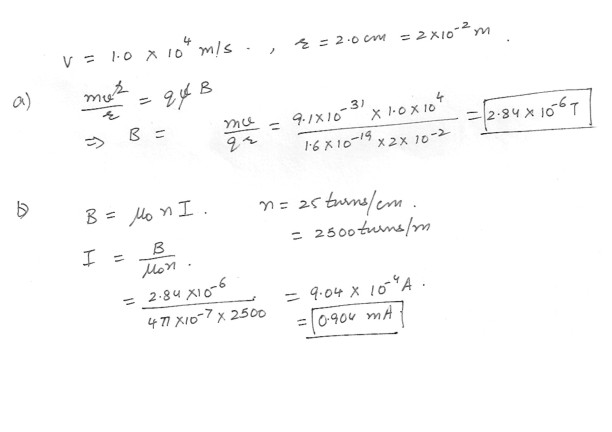 v = 1.0 × 10⁴ m/s . , r = 2.0 cm = 2×10⁻² m .
a) mv²/r = qvB
⇒ B = mv/qr = 9.1×10⁻³¹ × 1.0×10⁴ / 1.6×10⁻¹⁹ × 2×10⁻² = 2.84 × 10⁻⁶ T
b) B = μ₀ n I . n = 25 turns/cm .
= 2500 turns/m
I = B/μ₀n .
= 2.84 ×10⁻⁶ / 4π ×10⁻⁷ × 2500 = 9.04 × 10⁻⁴ A .
= 0.904 mA